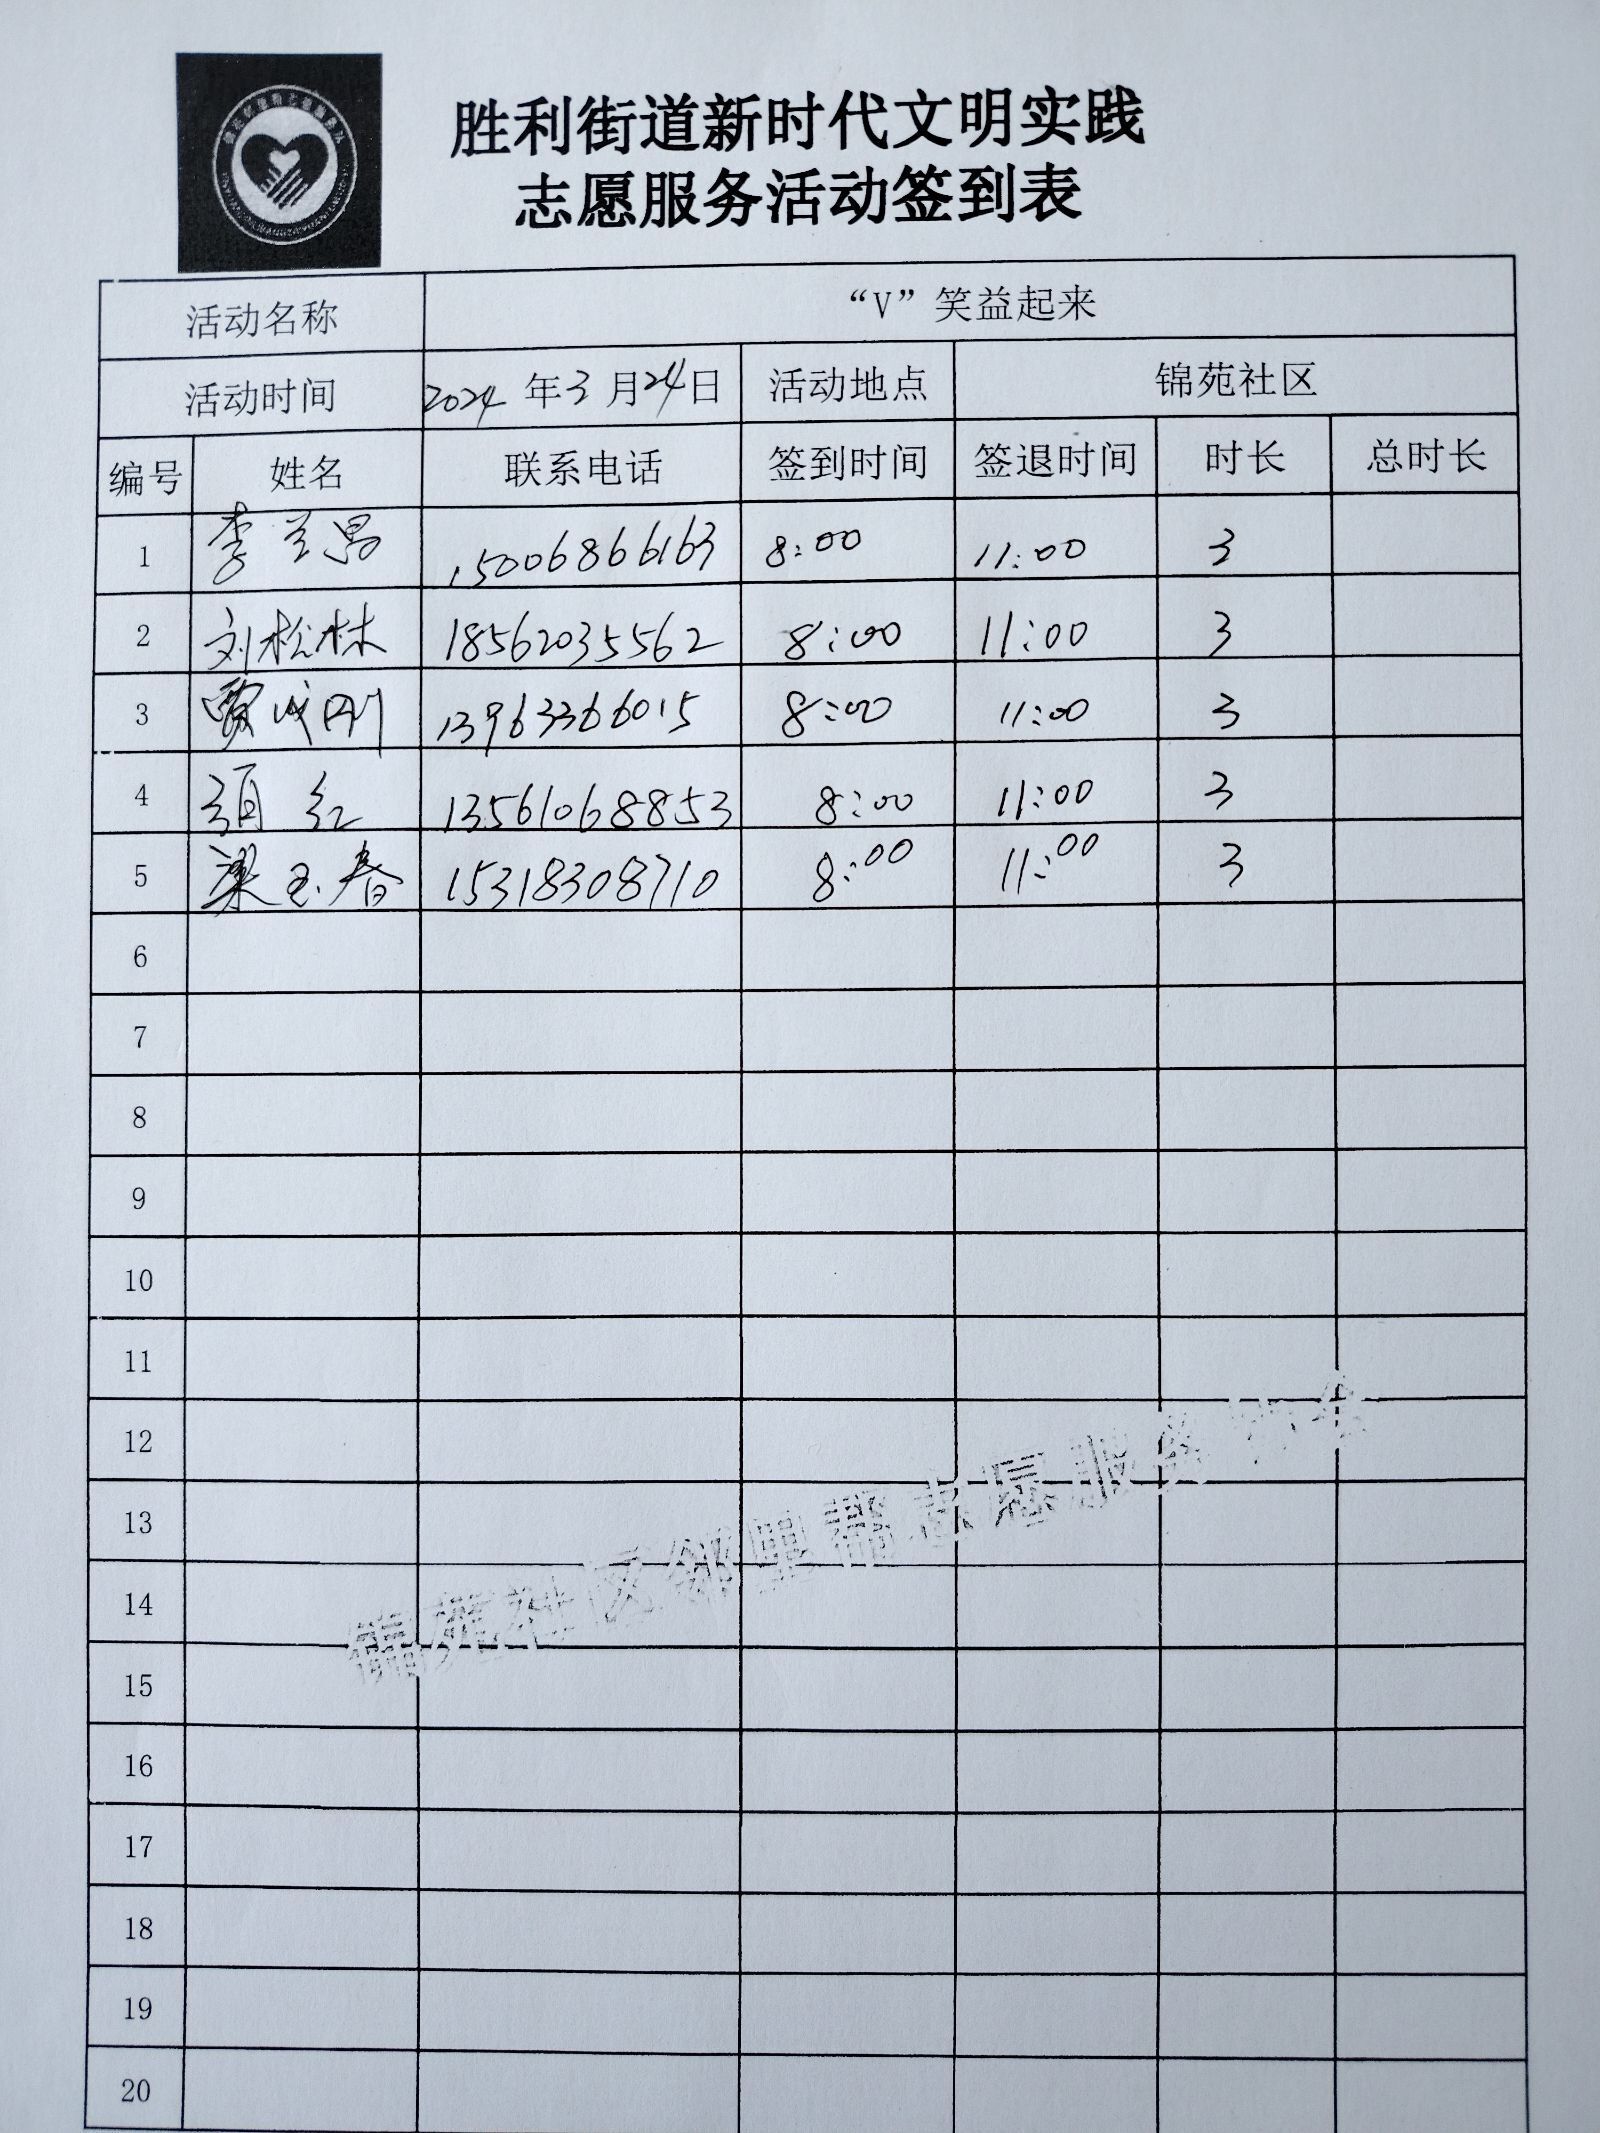 胜利街道新时代文明实践
志愿服务活动签到表
活动名称 “V”笑益起来
活动时间 2024 年 3 月 24 日 活动地点 锦苑社区
编号 姓名 联系电话 签到时间 签退时间 时长 总时长
1 李兰昌 15006866163 8:00 11:00 3
2 刘松林 18562035562 8:00 11:00 3
3 贾成刚 13963366015 8:00 11:00 3
4 红 13561068853 8:00 11:00 3
5 梁玉春 15318308710 8:00 11:00 3
6
7
8
9
10
11
12
13
14
15
16
17
18
19
20
锦苑社区邻里帮志愿服务协会